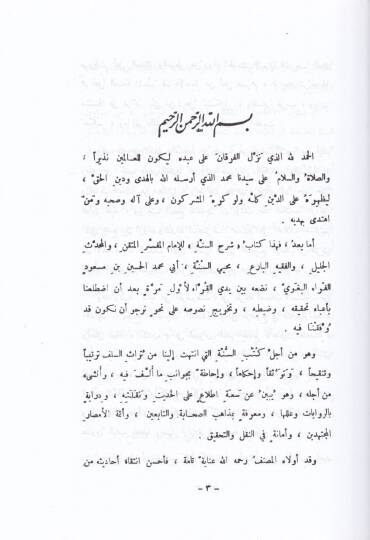 بسم الله الرحمن الرحيم
الحمد لله الذي نَزَّلَ الفرقانَ على عبده ليكون للعالمين نذيراً ،
والصلاةُ والسلامُ على سيدنا محمد الذي أرسله الله بالهدى ودينِ الحقِّ ،
ليُظهرهُ على الدِّينِ كلِّه ولو كره المشركون ، وعلى آله وصحبه ومَنْ
اهتدى بهديه .
أما بعدُ ، فهذا كتابُ « شرح السنّة » للإمام المفسِّر المتقن ، والمحدِّث
الجليل ، والفقيه البارع ، محيي السنّة ، أبي محمد الحسين بن مسعود
الفراء البغوي ، نضعه بين يدي القراء لأول مرة بعد أن اضطلعنا
بأعباء تحقيقه ، وضبطه ، وتخريج نصوصه على نحوٍ نرجو أن نكون قد
وُفِّقْنا فيه .
وهو من أجلِّ كُتُبِ السُّنَّةِ التي انتهت إلينا من تُراث السلف ترتيباً
وتنقيحاً ، وتوثُّقاً وإحكاماً ، وإحاطةً بجوانبِ ما أُلِّفَ فيه ، وأُنشىء
من أجله ، وهو يُبينُ عن سعةِ اطلاعٍ على الحديث ونَقَلَتِهِ ، ودرايةٍ
بالروايات وعللها ، ومعرفةٍ بمذاهب الصحابة والتابعين ، وأئمة الأمصار
المجتهدين ، وأمانةٍ في النقل والتحقيق .
وقد أولاه المصنفُ رحمه الله عنايةً تامة ، فأحسن انتقاء أحاديثه من
- ٣ -